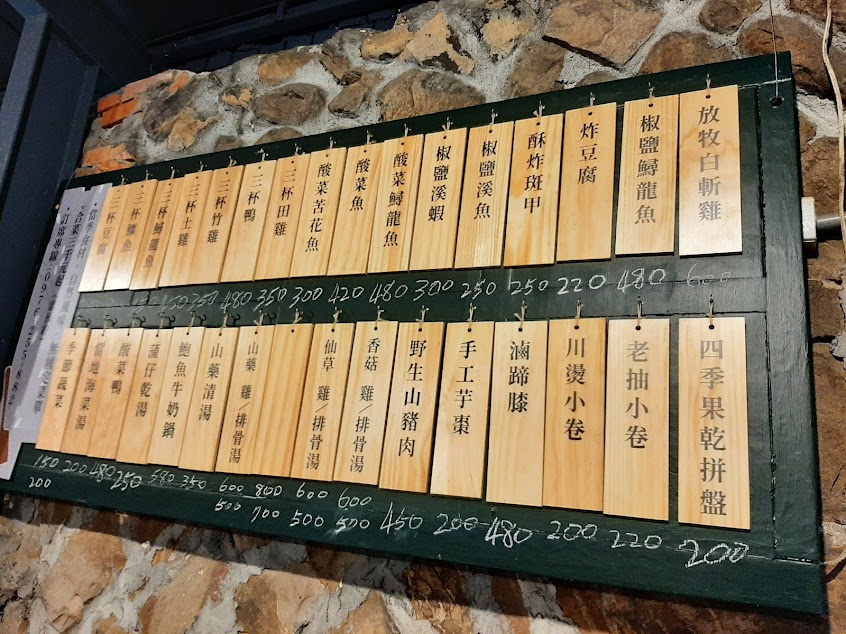 放牧白斬雞
椒鹽鱘龍魚
炸豆腐
酥炸斑甲
椒鹽溪魚
椒鹽溪蝦
酸菜鱘龍魚
酸菜魚
酸菜苦花魚
三杯田雞
三杯鴨
三杯竹雞
三杯土雞
三杯鱘龍魚
三杯鱸魚
三杯豆腐
350 480 350 300 420 480 300 250 250 220 480 600
四季果乾拼盤
老抽小卷
川燙小卷
滷蹄膝
手工芋棗
野生山豬肉
香菇 雞/排骨湯
仙草 雞/排骨湯
山藥 雞/排骨湯
山藥清湯
鮑魚牛奶鍋
蒲仔乾湯
酸菜鴨
當地海菜湯
季節蔬菜
150 200 480 250 580 350 600 800 600 600
200 500 700 500 500 450 200 480 200 220 200
當季食材
合菜三千元起
訂席專線:0976